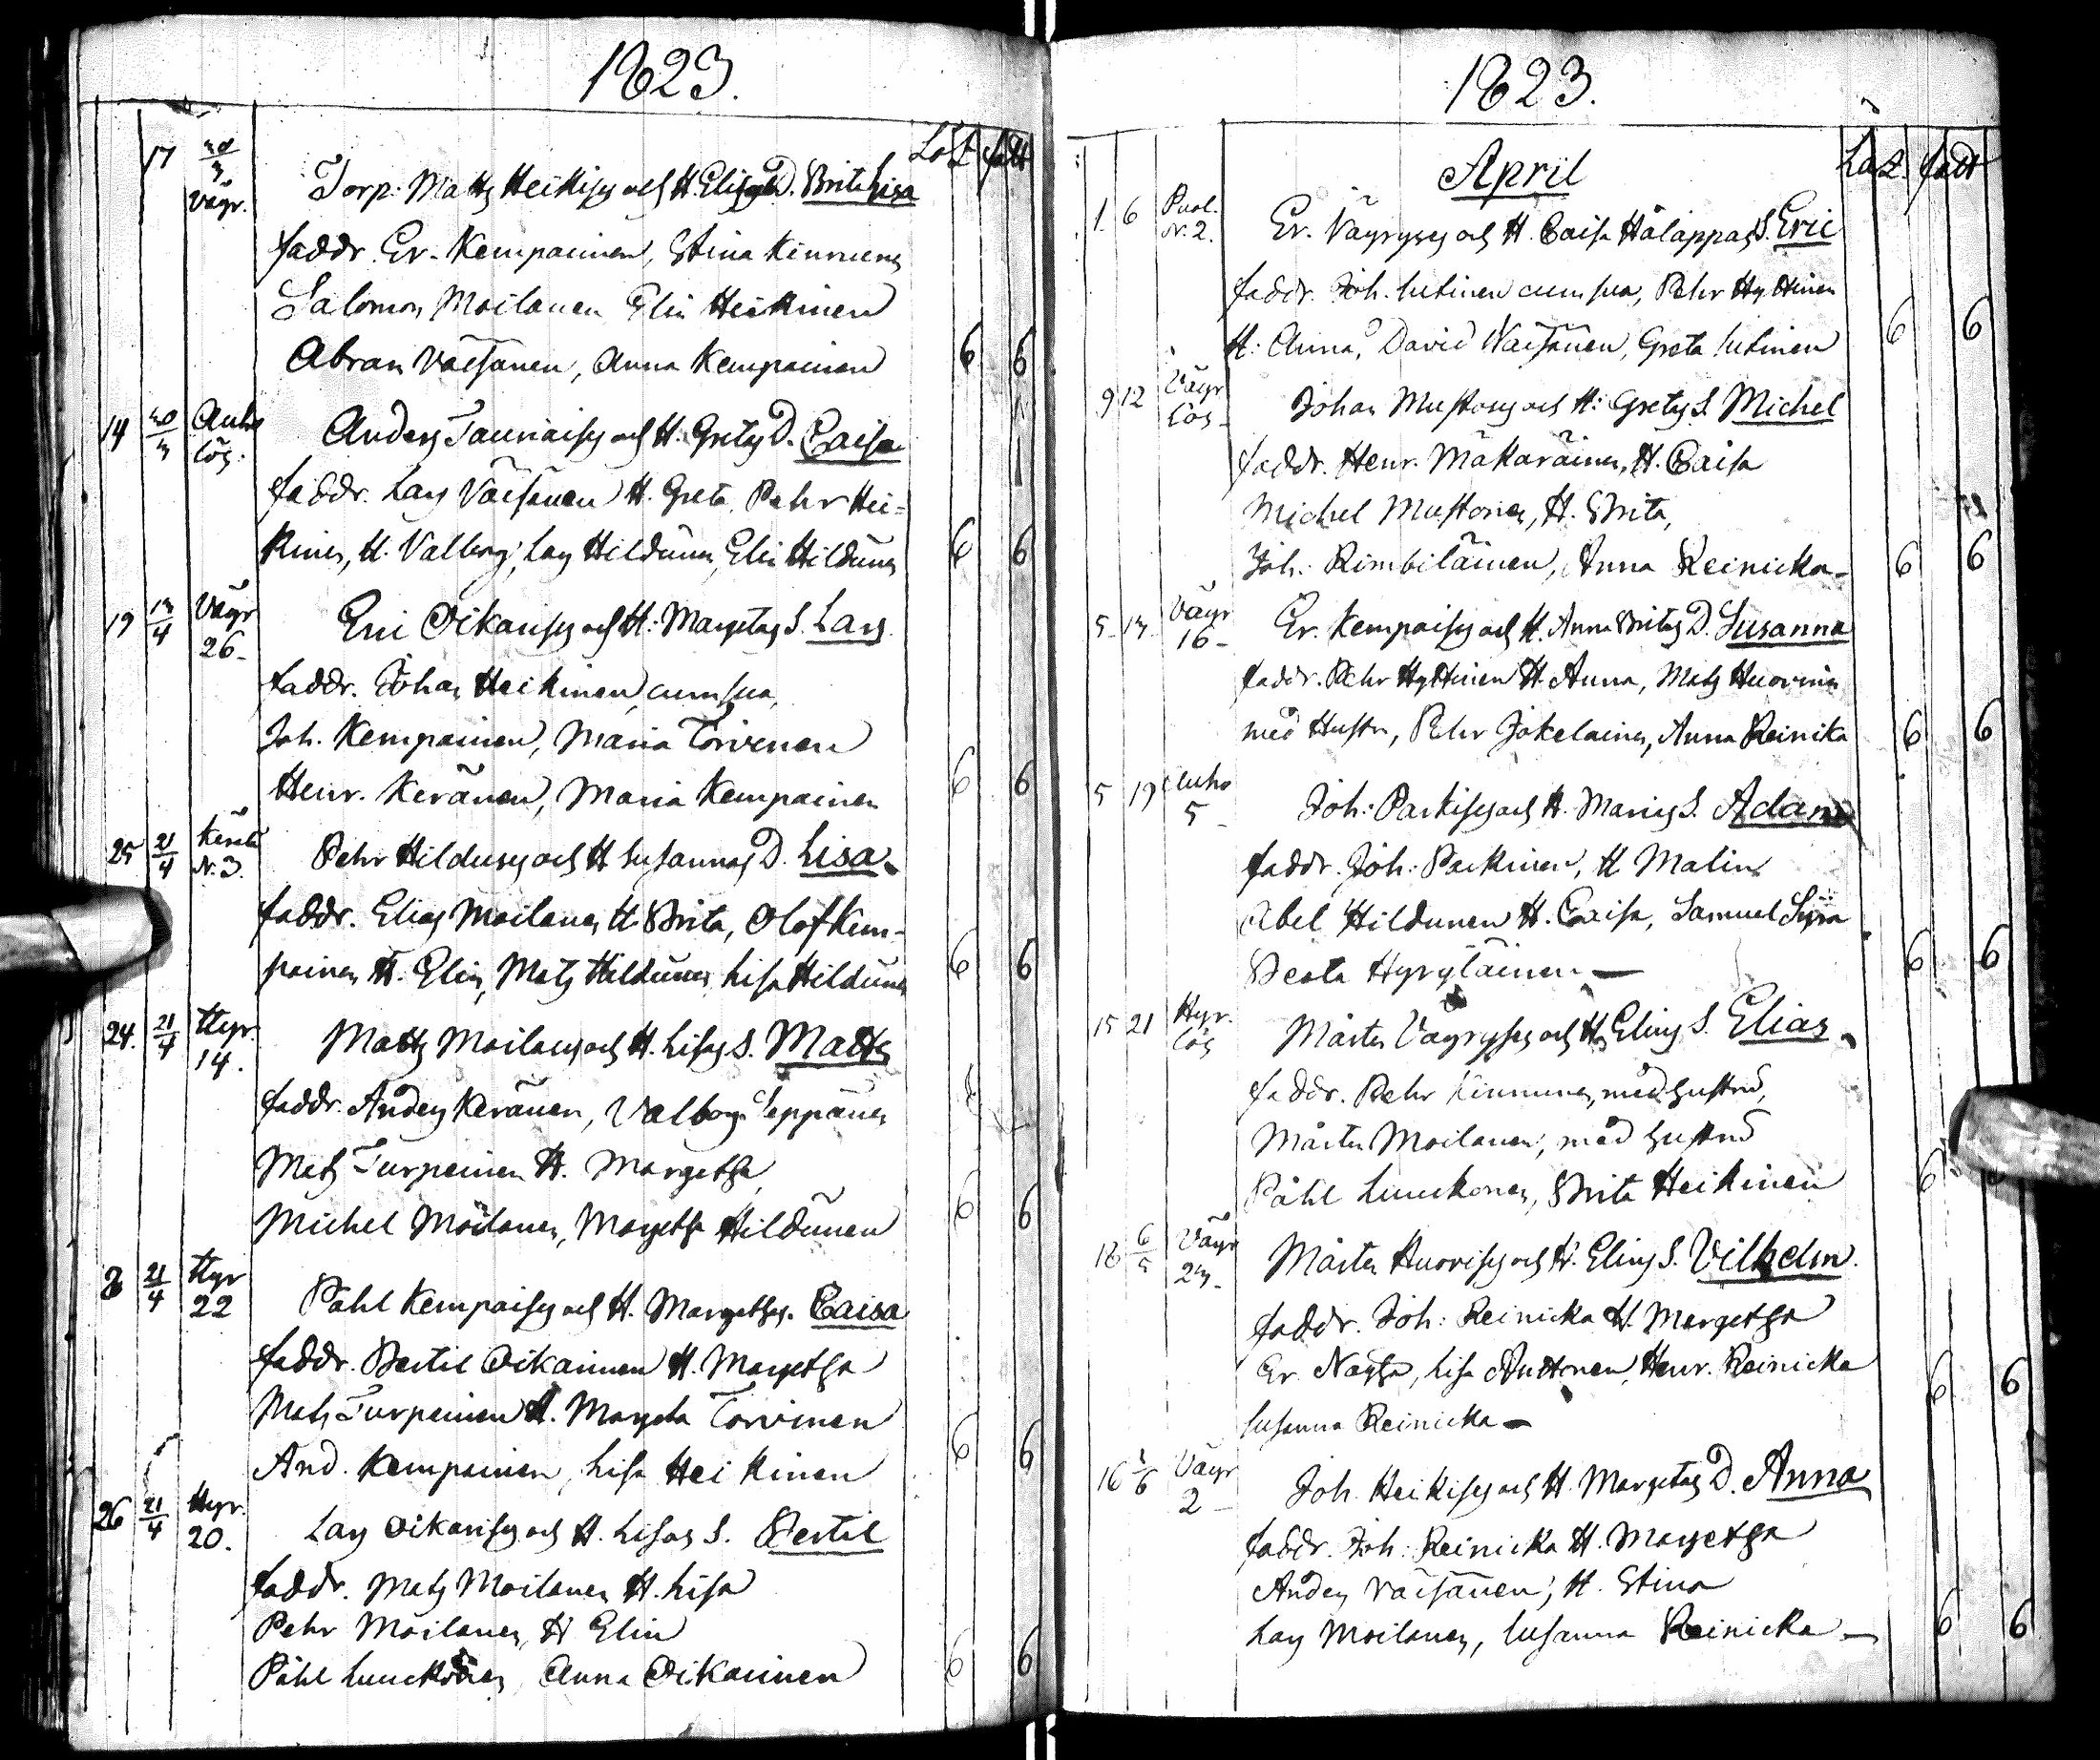 1823.
Löst fadd
17 30/3 Väyr.
Torp: Matts Heikisens och H. Elisas D. Brita Lisa
faddr. Er. Kempainen, Stina Kinnunen
Salomon Moilanen Elin Heikinen
Abram Väisänen, Anna Kempainen 6 6
14 30/3 Auho Lös:
Anders Tauriaisens och H. Gretas D. Caisa
faddr. Lars Väisänen H. Greta, Pehr Hei=
kinen, H. Valborg, Lars Hildunen, Elin Hildunen 6 6
19 13/4 Väyr 26
Eric Oikarisens och H: Margetas S. Lars
faddr. Johan Heikinen cum sua,
Joh. Kempainen, Maria Torvinen
Henr. Keränen, Maria Kempainen 6 6
25 21/4 N. 3.
Pehr Hildusens och H Susannas D. Lisa
faddr. Elias Moilanen H. Brita, Olof Kem-
painen H. Elin, Mats Hildunen Lisa Hildunen 6 6
24. 21/4 Hyr. 14.
Matts Moilasens och H. Lisas S. Matts
faddr. Anders Keränen, Valborg Seppänen
Mats Turpeinen H. Margetha
Michel Moilanen, Margetha Hildunen 6 6
8 21/4 Hyr 22
Påhl Kempaisens och H. Margethas. Caisa
faddr. Bertil Oikarinen H. Margetha
Mats Turpeinen H. Margeta Torvinen
And. Kempainen, Lisa Heikinen 6 6
26 21/4 Hyr. 20.
Lars Oikarisens och H. Lisas S. Bertil
faddr. Mats Moilanen H. Lisa
Pehr Moilanen, H Elin
Påhl Luuckonen, Anna Oikarinen 6 6
1823.
April
Löst. fadd
1. 6 Puol. N. 2.
Er. Väyrysens och H. Caisa Hålappas S. Eric
faddr. Joh. Lutinen cum sua, Pehr Hyttinen
H: Anna, David Väisänen, Greta Lutinen 6 6
9 12 Väyr Lös
Johan Mustosens och H: Gretas S. Michel
faddr. Henr. Mäkäräinen, H. Caisa
Michel Mustonen, H. Brita,
Joh. Rimbiläinen, Anna Reinicka 6 6
5 13 Väyr 16
Er. Kempaisens och H. Anna Britas D. Susanna
faddr. Pehr Hyttinen H. Anna, Mats Huovinen
med Hustru, Pehr Jokelainen, Anna Reinika 6 6
5 19 Auho 5
Joh: Parkisens och H. Marias S. Adam
faddr. Joh: Parkinen, H Malin
Abel Hildunen H. Caisa, Samuel
Beata Hyryläinen 6 6
15 21 Hyr. Lös
Mårten Väyrysens och H. Elins S. Elias
faddr. Pehr Kinnunen, med hustru,
Mårten Moilanen, med hustru
Påhl Luuckonen, Brita Heikinen 6
18 6/5 Väyr 23
Mårten Huovisens och H. Elins S. Vilhelm.
faddr. Joh: Reinicka H. Margetha
Er. Lisa Anttonen, Henr. Reinicka 6 6
Susanna Reinicka
16 1/6 Väyr 2
Joh. Heikisens och H. Margetas D. Anna
faddr. Joh: Reinicka H. Margetha
Anders Väisänen, H. Stina
Lars Moilanen, Susanna Reinicka 6 6